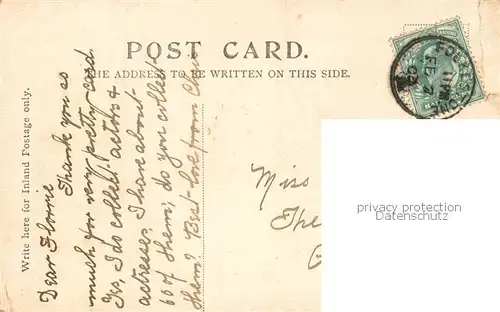 POST CARD.
THE ADDRESS TO BE WRITTEN ON THIS SIDE.
Write here for Inland Postage only.
Dear Florrie
Thank you so
much for very pretty card.
Yes, I do collect actors &
actresses, I have about
60 of them; do you collect
them? Best love from
FOLKESTONE
FE 7
03
Miss
The
privacy protection
Datenschutz